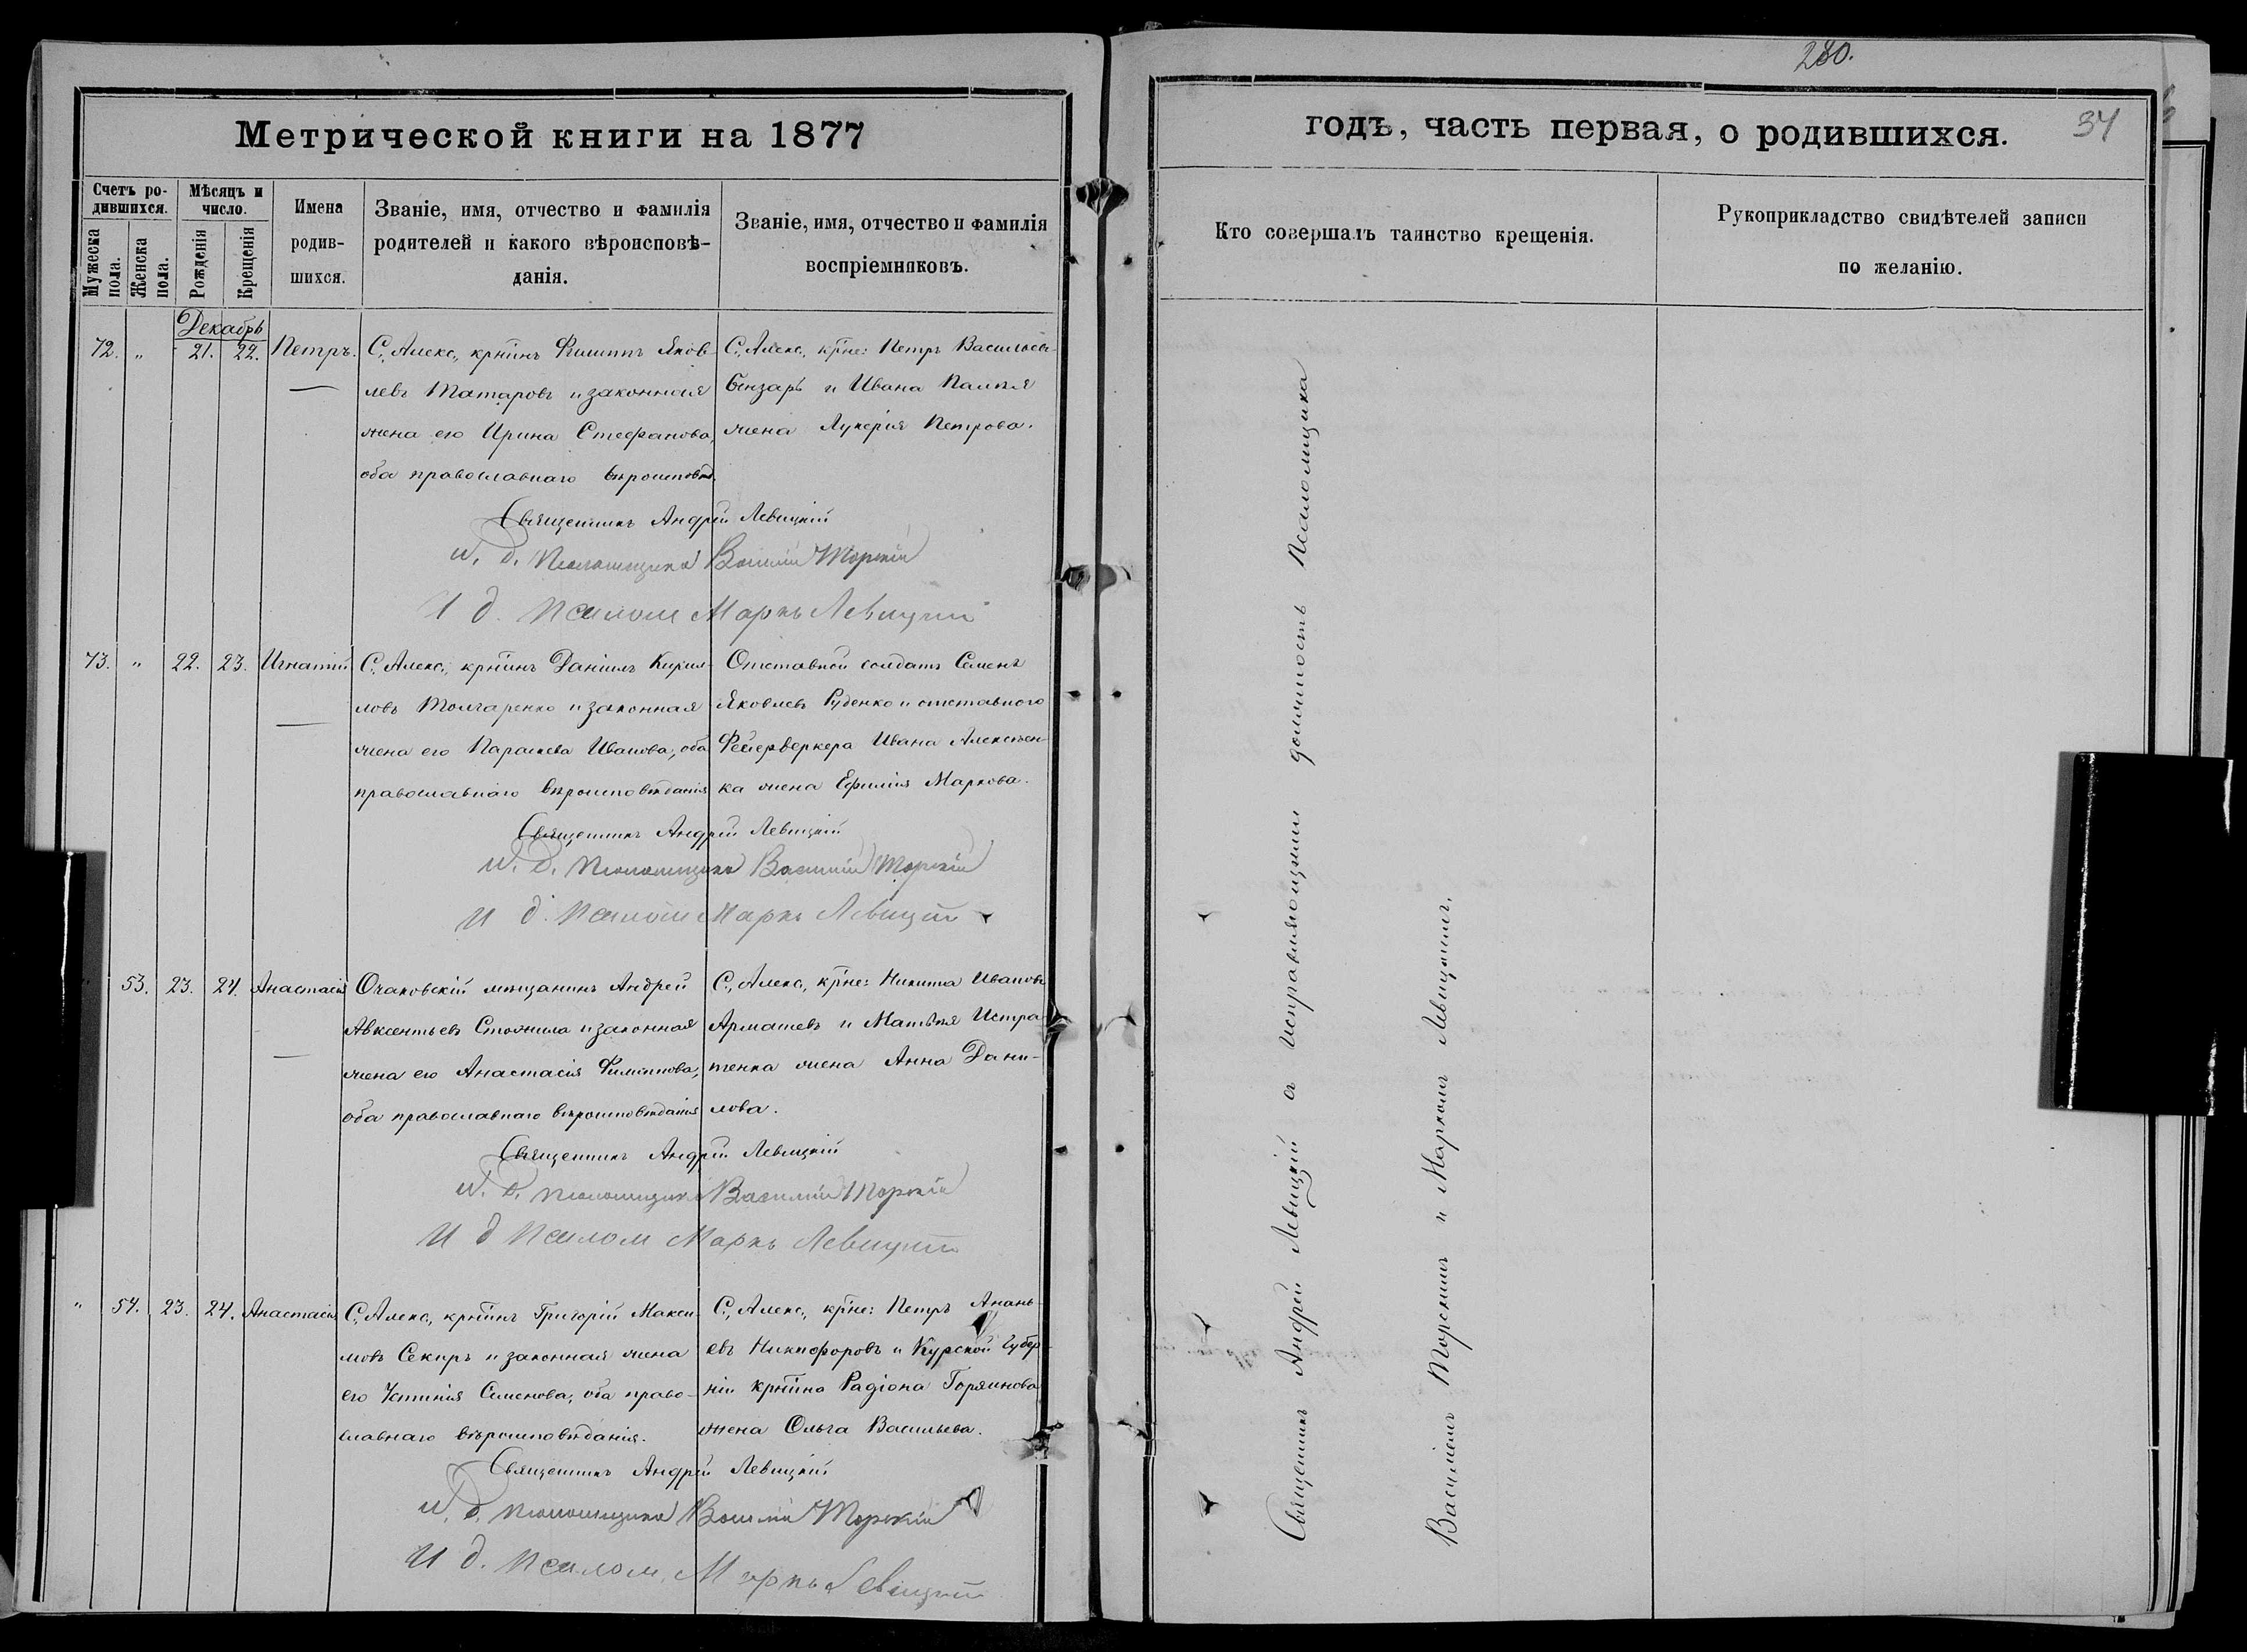 280.
34
Метрической книги на 1877
годъ, часть первая, о родившихся.
Счетъ ро-
дившихся.
Мужеска
пола.
Женска
пола.
Мѣсяцъ и
число.
Рожденія
Крещенія
Имена
родив-
шихся.
Званіе, имя, отчество и фамилія
родителей и какого вѣроисповѣ-
данія.
Званіе, имя, отчество и фамилія
воспріемниковъ.
Кто совершалъ таинство крещенія.
Рукоприкладство свидѣтелей записи
по желанію.
Декабрь
72. „ 21. 22. Петръ.
С. Алекс., крнинъ Филиппъ Яков-
левъ Татаровъ и законная
жена его Ирина Стефанова,
оба православнаго вѣроисповѣд.
С. Алекс., крне: Петръ Васильевъ
Бнзарь и Ивана
жена Лукерія Петрова.
Священникъ Андрей Левицкій
И. д. Псаломщика Василій Торскій
И д. Псалом Маркъ Левицкій
73. „ 22. 23. Игнатій
С. Алекс., крнинъ Даніилъ Кирил-
ловъ и законная
жена его Параскева Иванова, оба
православнаго вѣроисповѣданія
Отставной солдатъ Семенъ
Яковлевъ Руденко и отставного
Фейерверкера Ивана Алексѣен-
ка жена Ефимія Маркова.
Священникъ Андрей Левицкій
И. д. Псаломщика Василій Торскій
И д. Псалом Маркъ Левицкій
53. 23. 24. Анастасія
Очаковскій мѣщанинъ Андрей
Авксентьевъ и законная
жена его Анастасія Филиппова,
оба православнаго вѣроисповѣданія
С. Алекс., крне: Никита Ивановъ
Арматевъ и Матѳея Истра-
тенка жена Анна Дани-
лова.
Священникъ Андрей Левицкій
И. д. Псаломщика Василій Торскій
И д Псалом Маркъ Левицкій
„ 54. 23. 24. Анастасія
С. Алекс., крнинъ Григорій Макси-
мовъ Секиръ и законная жена
его Устинія Семенова, оба право-
славнаго вѣроисповѣданія.
С. Алекс., крне: Петръ Анань-
евъ Никифоровъ и Курской губер-
ніи крнина Радіона Горяинова
жена Ольга Васильева.
Священникъ Андрей Левицкій
И. д. Псаломщика Василій Торскій
И д. Псалом. Маркъ Левицкій
Священникъ Андрей Левицкій съ исправляющими должность Псаломщика
Василіемъ Торскимъ и Маркомъ Левицкимъ.